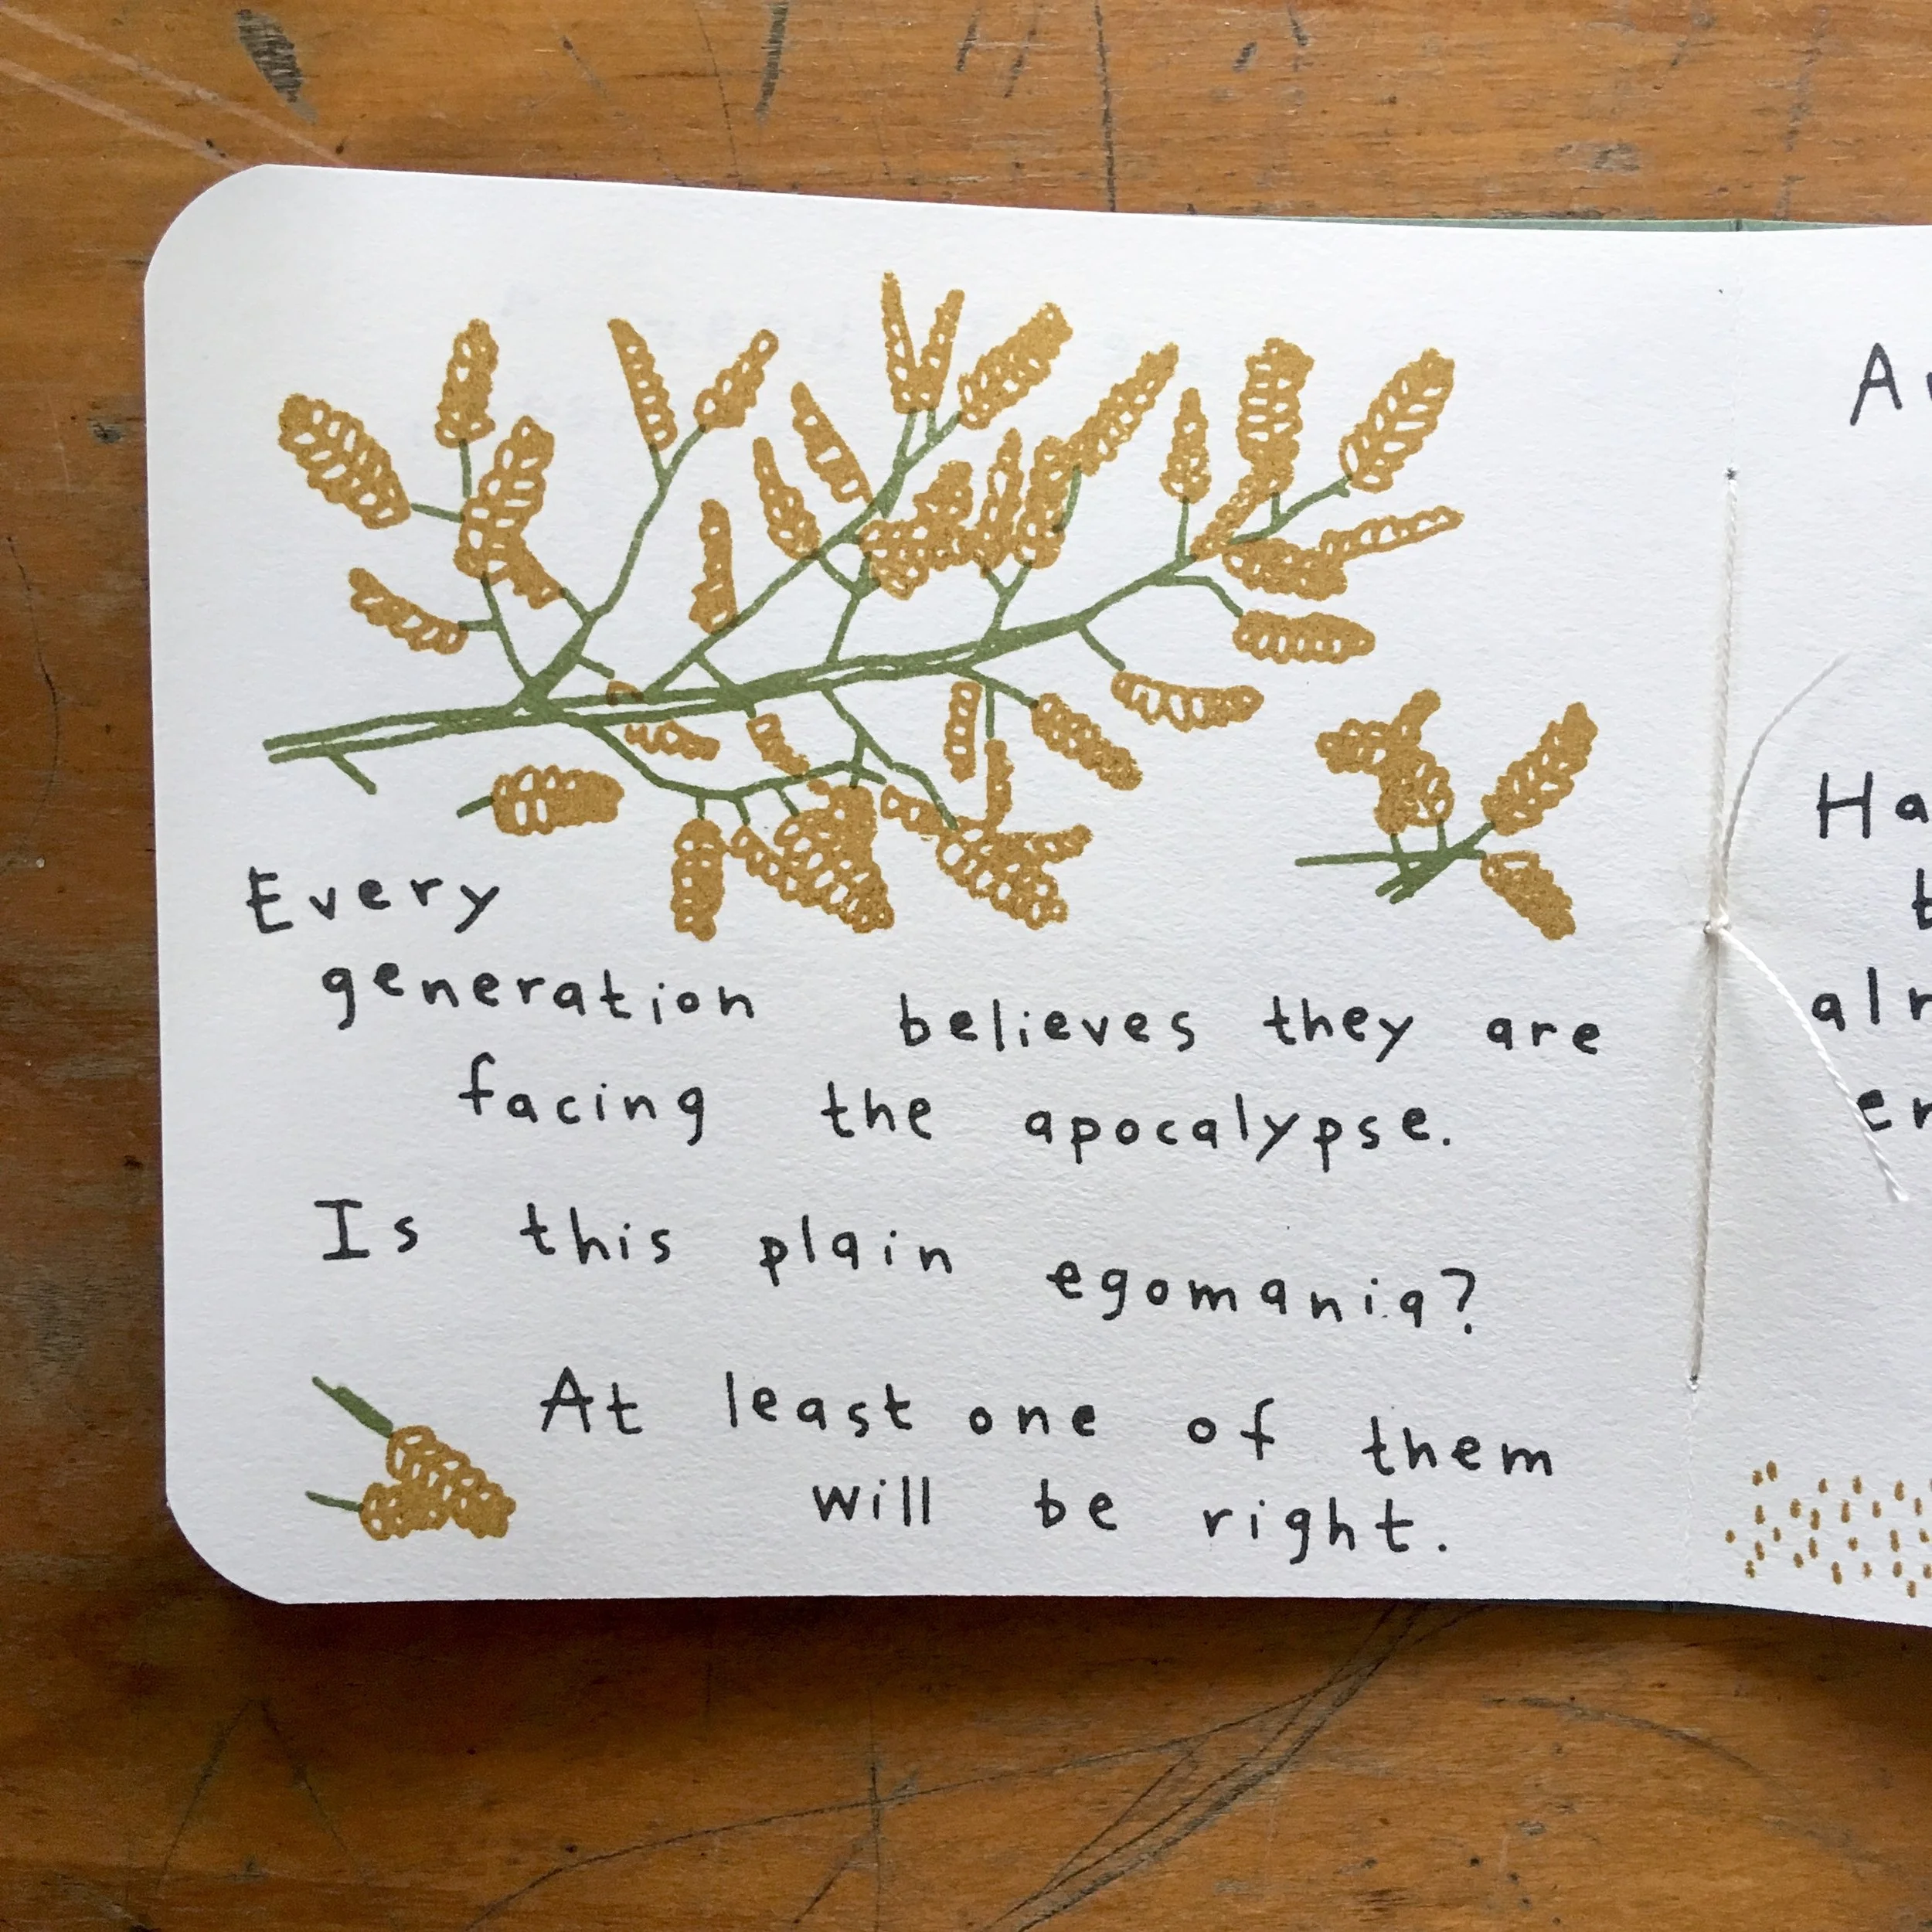 Every
generation believes they are
facing the apocalypse.
Is this plain egomania?
At least one of them
will be right.